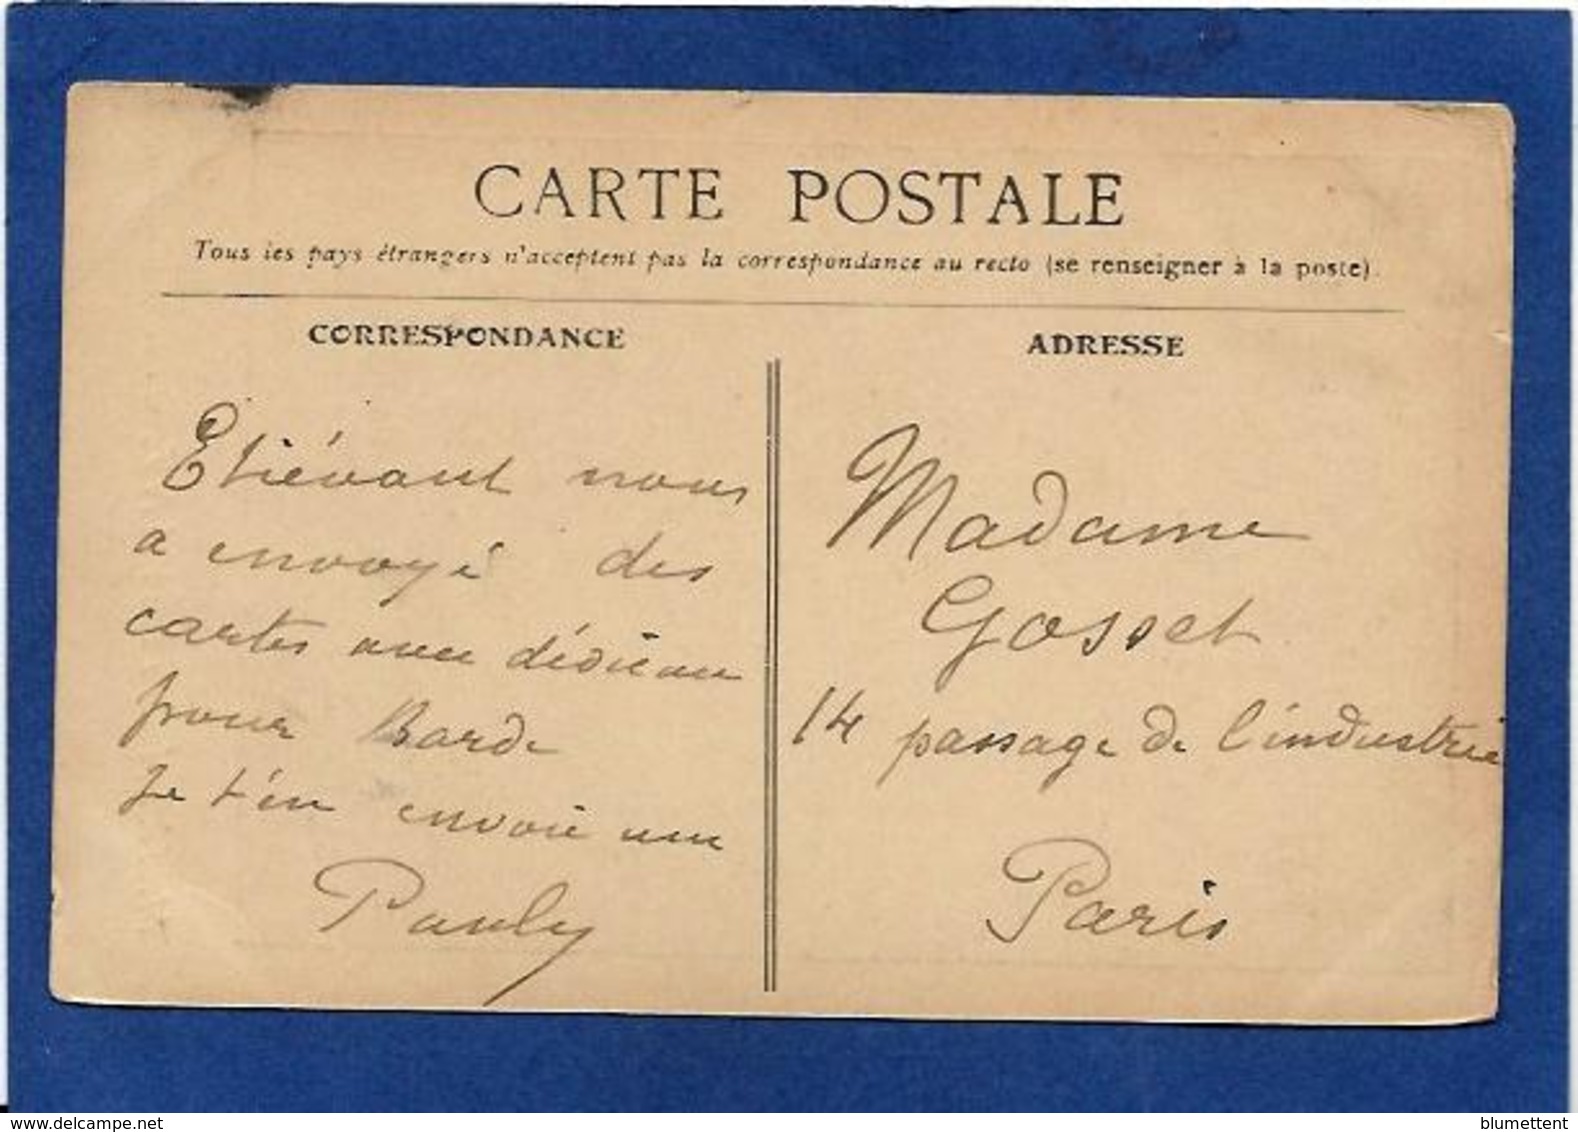 CARTE POSTALE
Tous les pays étrangers n'acceptent pas la correspondance au recto (se renseigner à la poste).
CORRESPONDANCE
Etiévant nous
a envoyé des
cartes avec dédicace
pour Barde
Je t'en envoie une
Pauly
ADRESSE
Madame
Gosset
14 passage de l'industrie
Paris
delcampe.net
blumettent